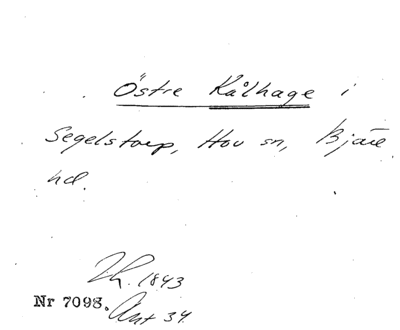 Östre Kålhage i
Segelstorp, Hov sn, Bjäre
hd.
Lh. 1843
Nr 7098. Akt 34